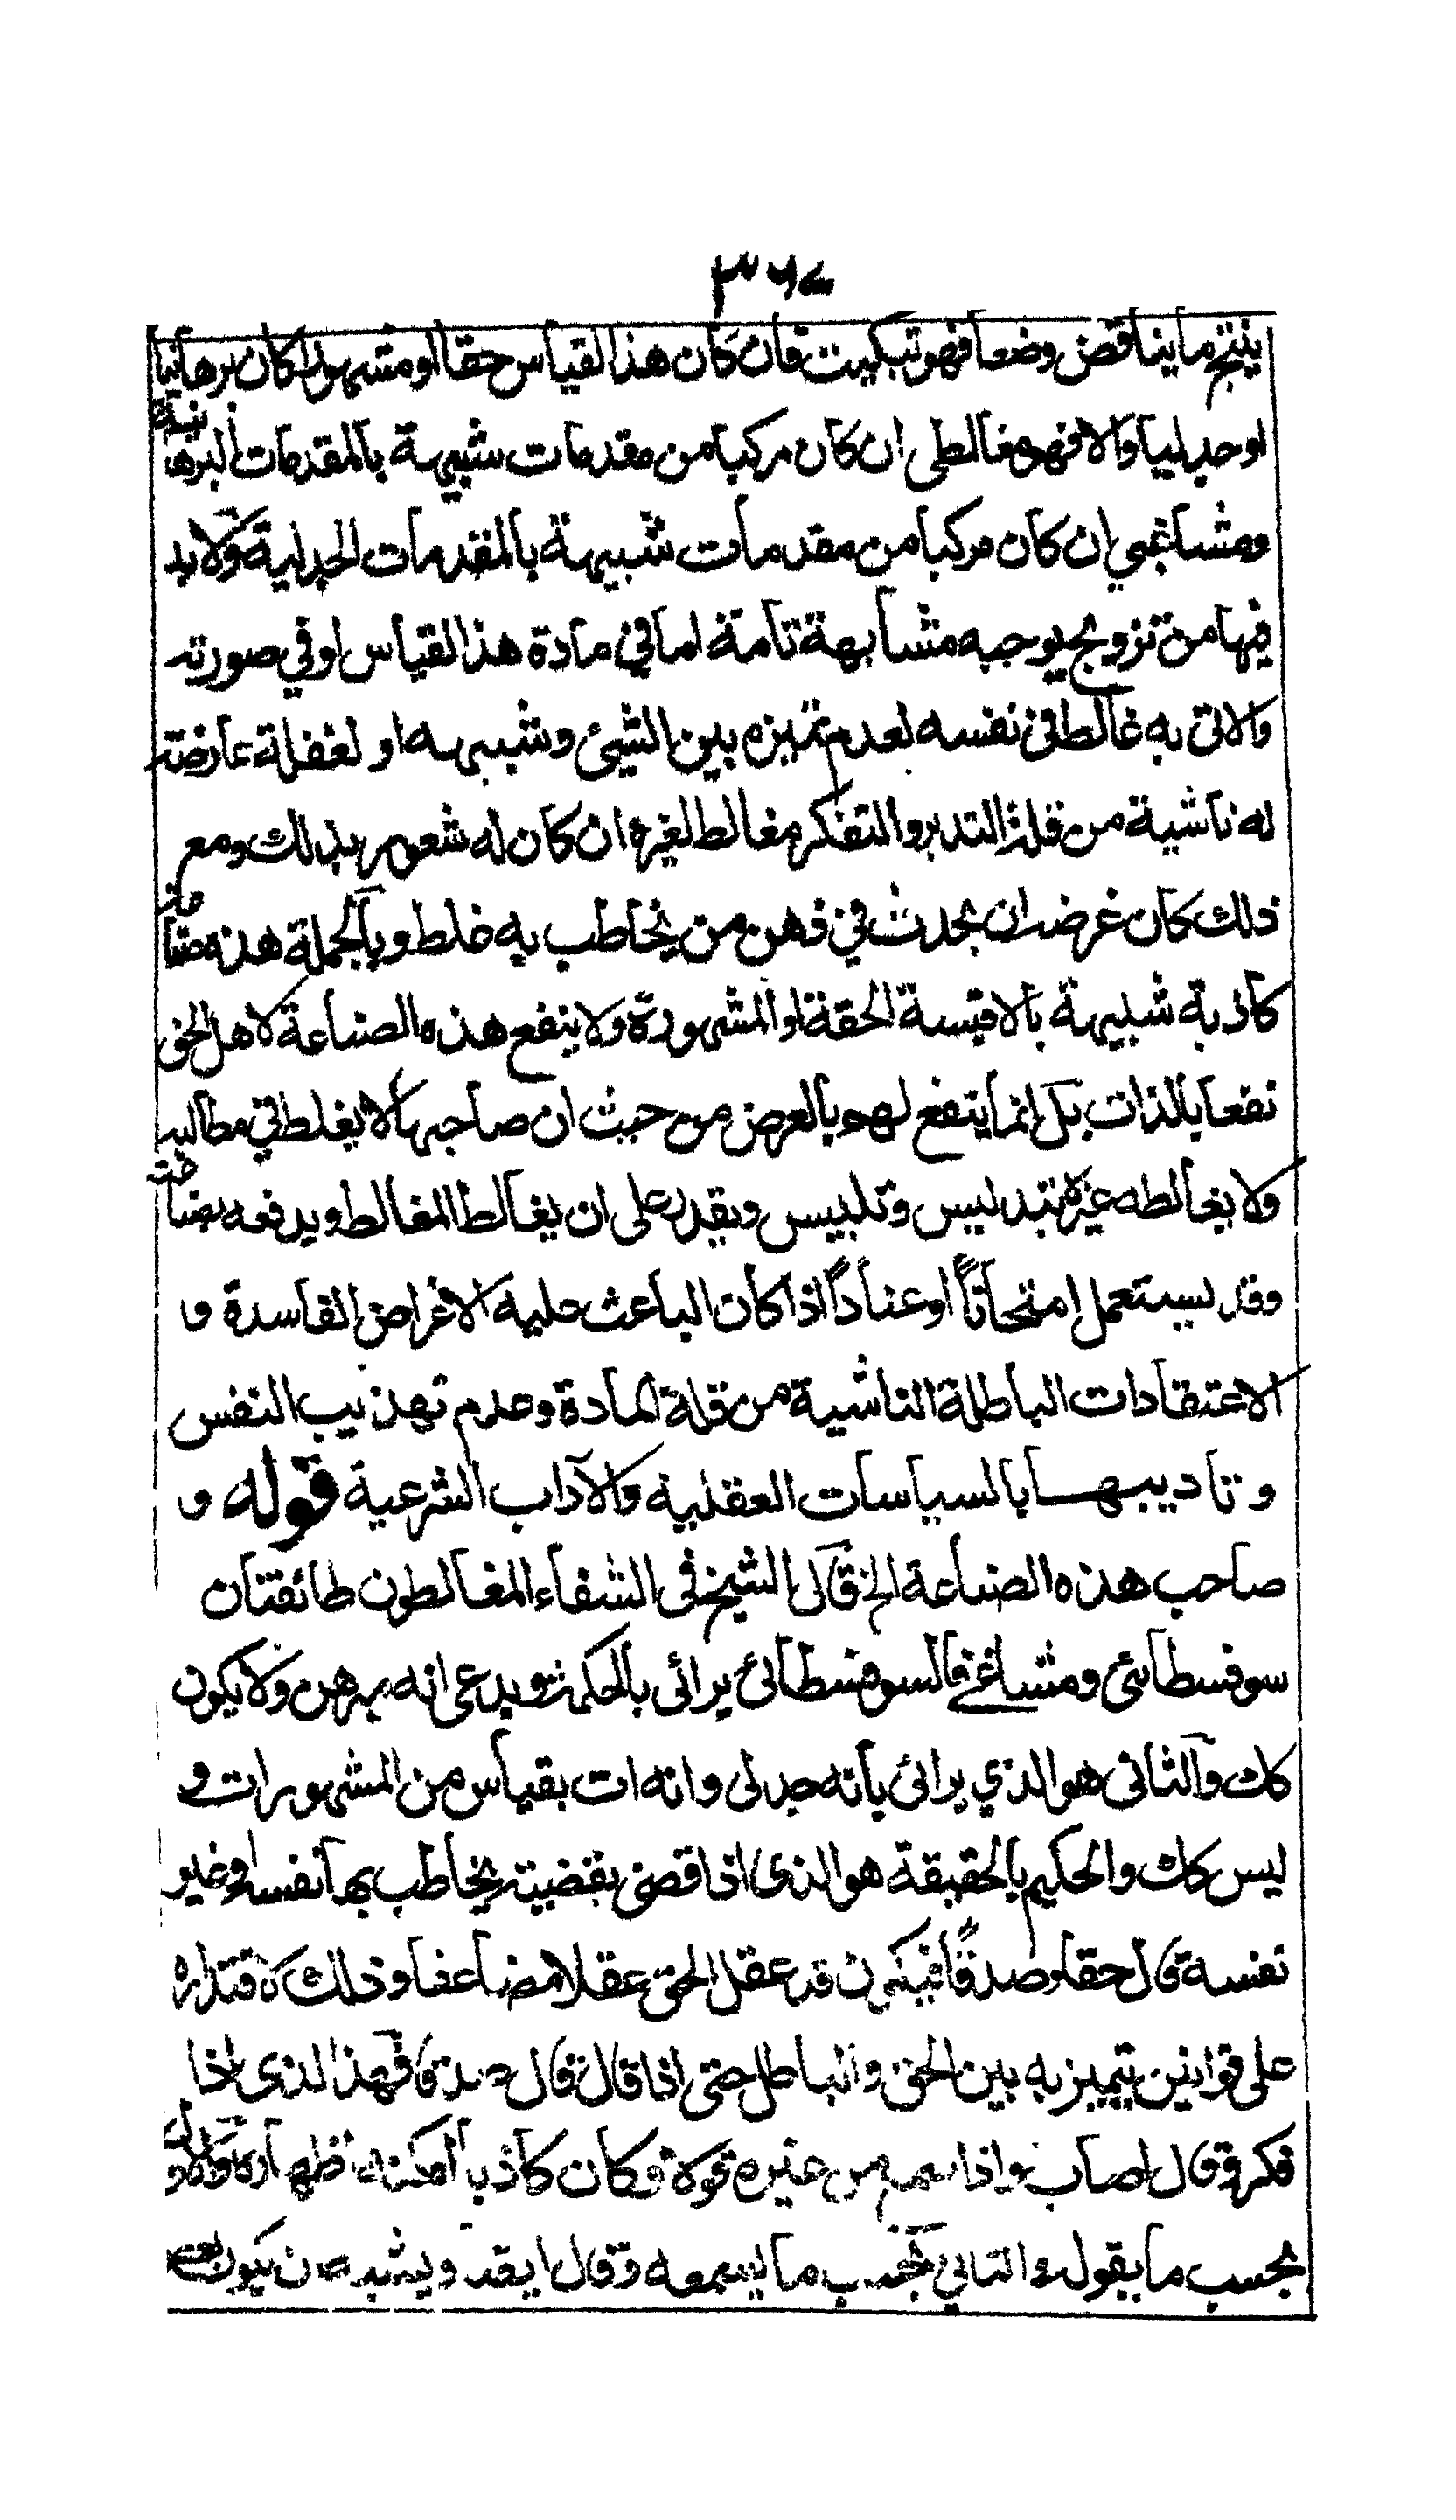 ٣٦٧
ينتج ما يناقض وضعا فهو تبكيت فان كان هذا القياس حقا او مشهورا كان برهانيا
او جدليا والا فهو مغالطى ان كان مركبا من مقدمات شبيهة بالمقدمات البرهانية
ومشاغبي ان كان مركبا من مقدمات شبيهة بالمقدمات الجدلية ولا بد
فيها من تزويج يوجبه مشابهة تامة اما في مادة هذا القياس او في صورته
والاتى به غالط في نفسه لعدم تميزه بين الشيئ وشبيهه او لغفلة عارضته
له ناشية من قلة التدبر والتفكر مغالط لغيره ان كان له شعور بذلك ومع
ذلك كان غرضه ان يحدث في ذهن من يخاطب به غلط وبالجملة هذه صناعة
كاذبة شبيهة بالاقيسة الحقة او المشهورة ولا ينفع هذه الصناعة لاهل الحق
نفعا بالذات بل انما ينتفع لهم بالعرض من حيث ان صاحبها لا يغلط في مطالبه
ولا يغالطه غيره بتدليس وتلبيس ويقدر على ان يغالط المغالط ويدفعه بصناعته
وقد يستعمل امتحاناً او عناداً اذا كان الباعث عليه الاغراض الفاسدة و
الاعتقادات الباطلة الناشية من قلة المادة وعدم تهذيب النفس
و تاديبها بالسياسات العقلية والآداب الشرعية قوله و
صاحب هذه الصناعة الخ قال الشيخ فى الشفاء المغالطون طائفتان
سوفسطائى ومشاغبى فالسوفسطائى يرائى بالحكمة ويدعى انه برهن ولا يكون
كك والثانى هو الذي يرائى بانه جدلى وانه ات بقياس من المشهورات و
ليس كك والحكيم بالحقيقة هو الذى اذا قضى بقضية يخاطب بها نفسه او غير
نفسه قال حقا وصدقاً فيكون قد عقل الحق عقلا مضاعفا وذلك لاقتداره
على قوانين يتميز به بين الحق والباطل حتى اذا قال قال صدقا فهذا الذى اذا
فكر وقال اصاب واذا سمع من غيره قولا وكان كاذبا امكنه اظهاره والاول
بحسب ما يقوله والثاني بحسب ما يسمعه وقال ايضا ويشبه ان يكون بعض